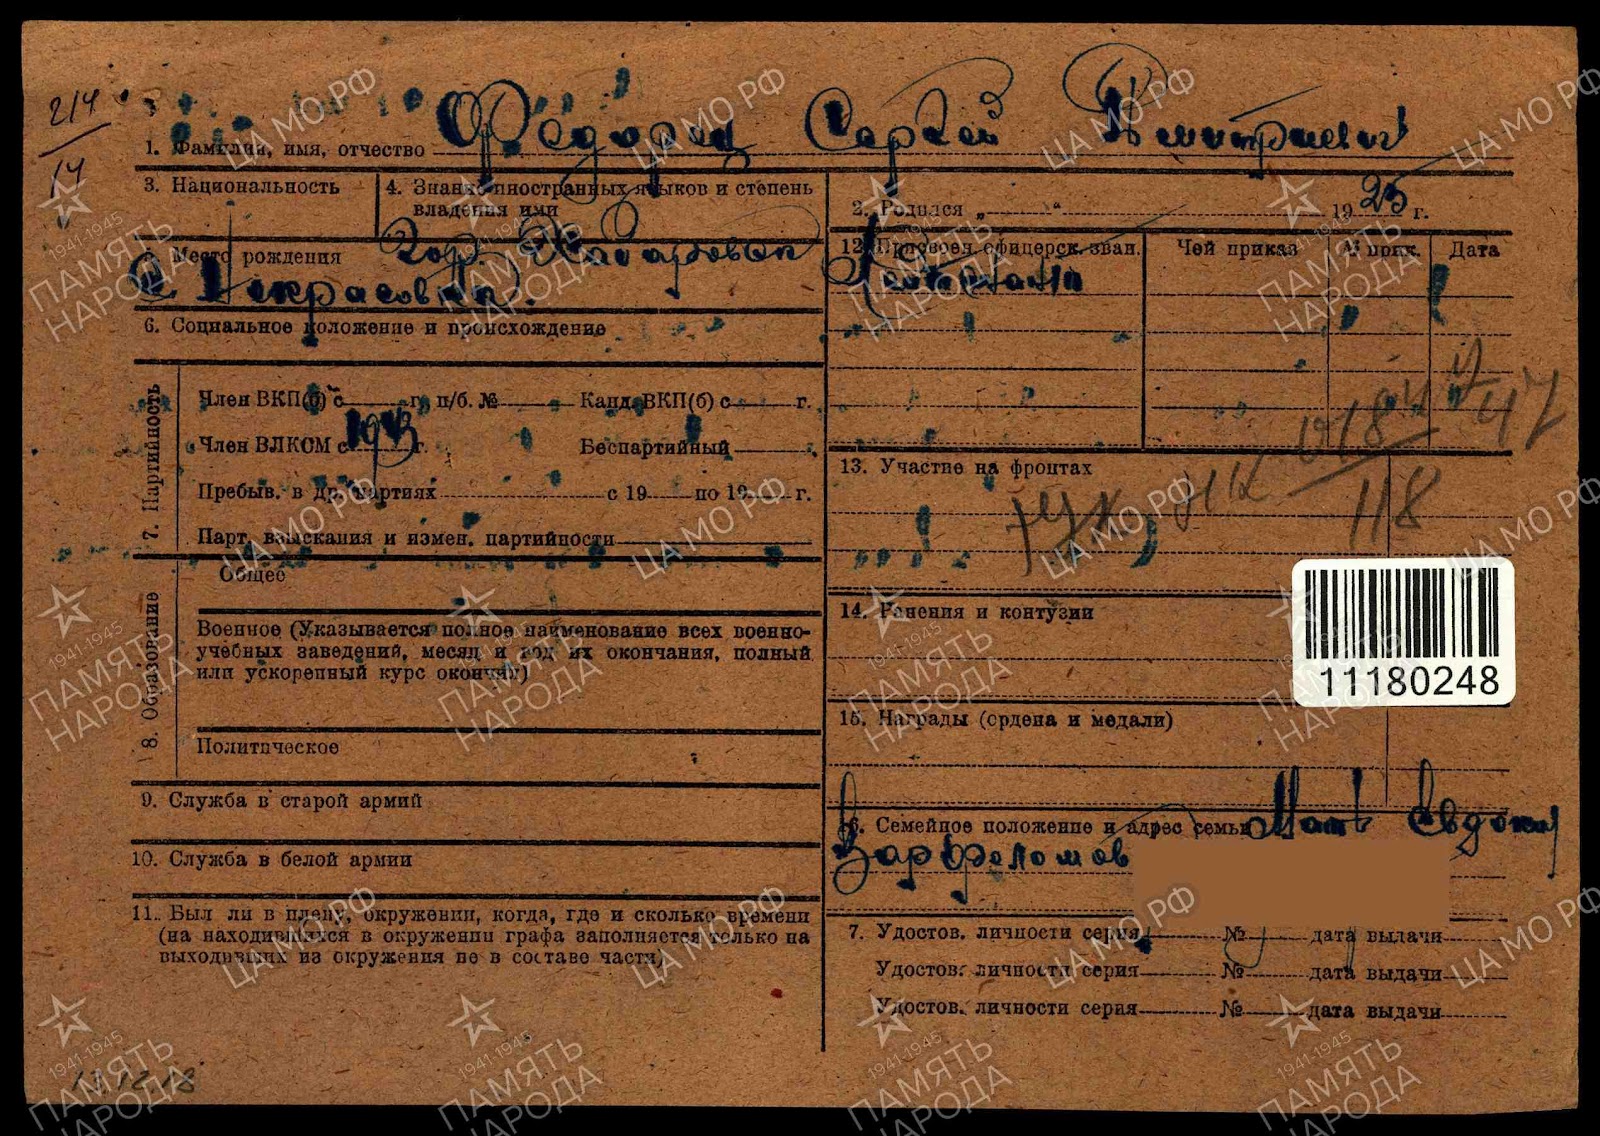 214
14
1. Фамилия, имя, отчество Федорец Сергей Дмитриевич
3. Национальность
4. Знание иностранных языков и степень
владения ими
2. Родился „ “ 1925 г.
5. Место рождения Гор. Хабаровск
с. Некрасовка.
12. Присвоен офицерск. зван. Чей приказ № прик. Дата
Лейтенант
6. Социальное положение и происхождение
7. Партийность
Член ВКП(б) с г. п/б. № Канд. ВКП(б) с г.
Член ВЛКСМ с 1943 г. Беспартийный
Пребыв. в др. партиях с 19 по 19 г.
Парт. взыскания и измен. партийности
13. Участие на фронтах
118
47
8. Образование
Общее
Военное (Указывается полное наименование всех военно-
учебных заведений, месяц и год их окончания, полный
или ускоренный курс окончил)
Политическое
14. Ранения и контузии
11180248
15. Награды (ордена и медали)
9. Служба в старой армий
10. Служба в белой армии
11. Был ли в плену, окружении, когда, где и сколько времени
(на находившихся в окружении графа заполняется только на
выходивших из окружения не в составе части)
16. Семейное положение и адрес семьи Мать Евдокия
Варфоломов
7. Удостов. личности серия № дата выдачи
Удостов. личности серия № дата выдачи
Удостов. личности серия № дата выдачи
ЦА МО РФ
1941-1945
ПАМЯТЬ
НАРОДА